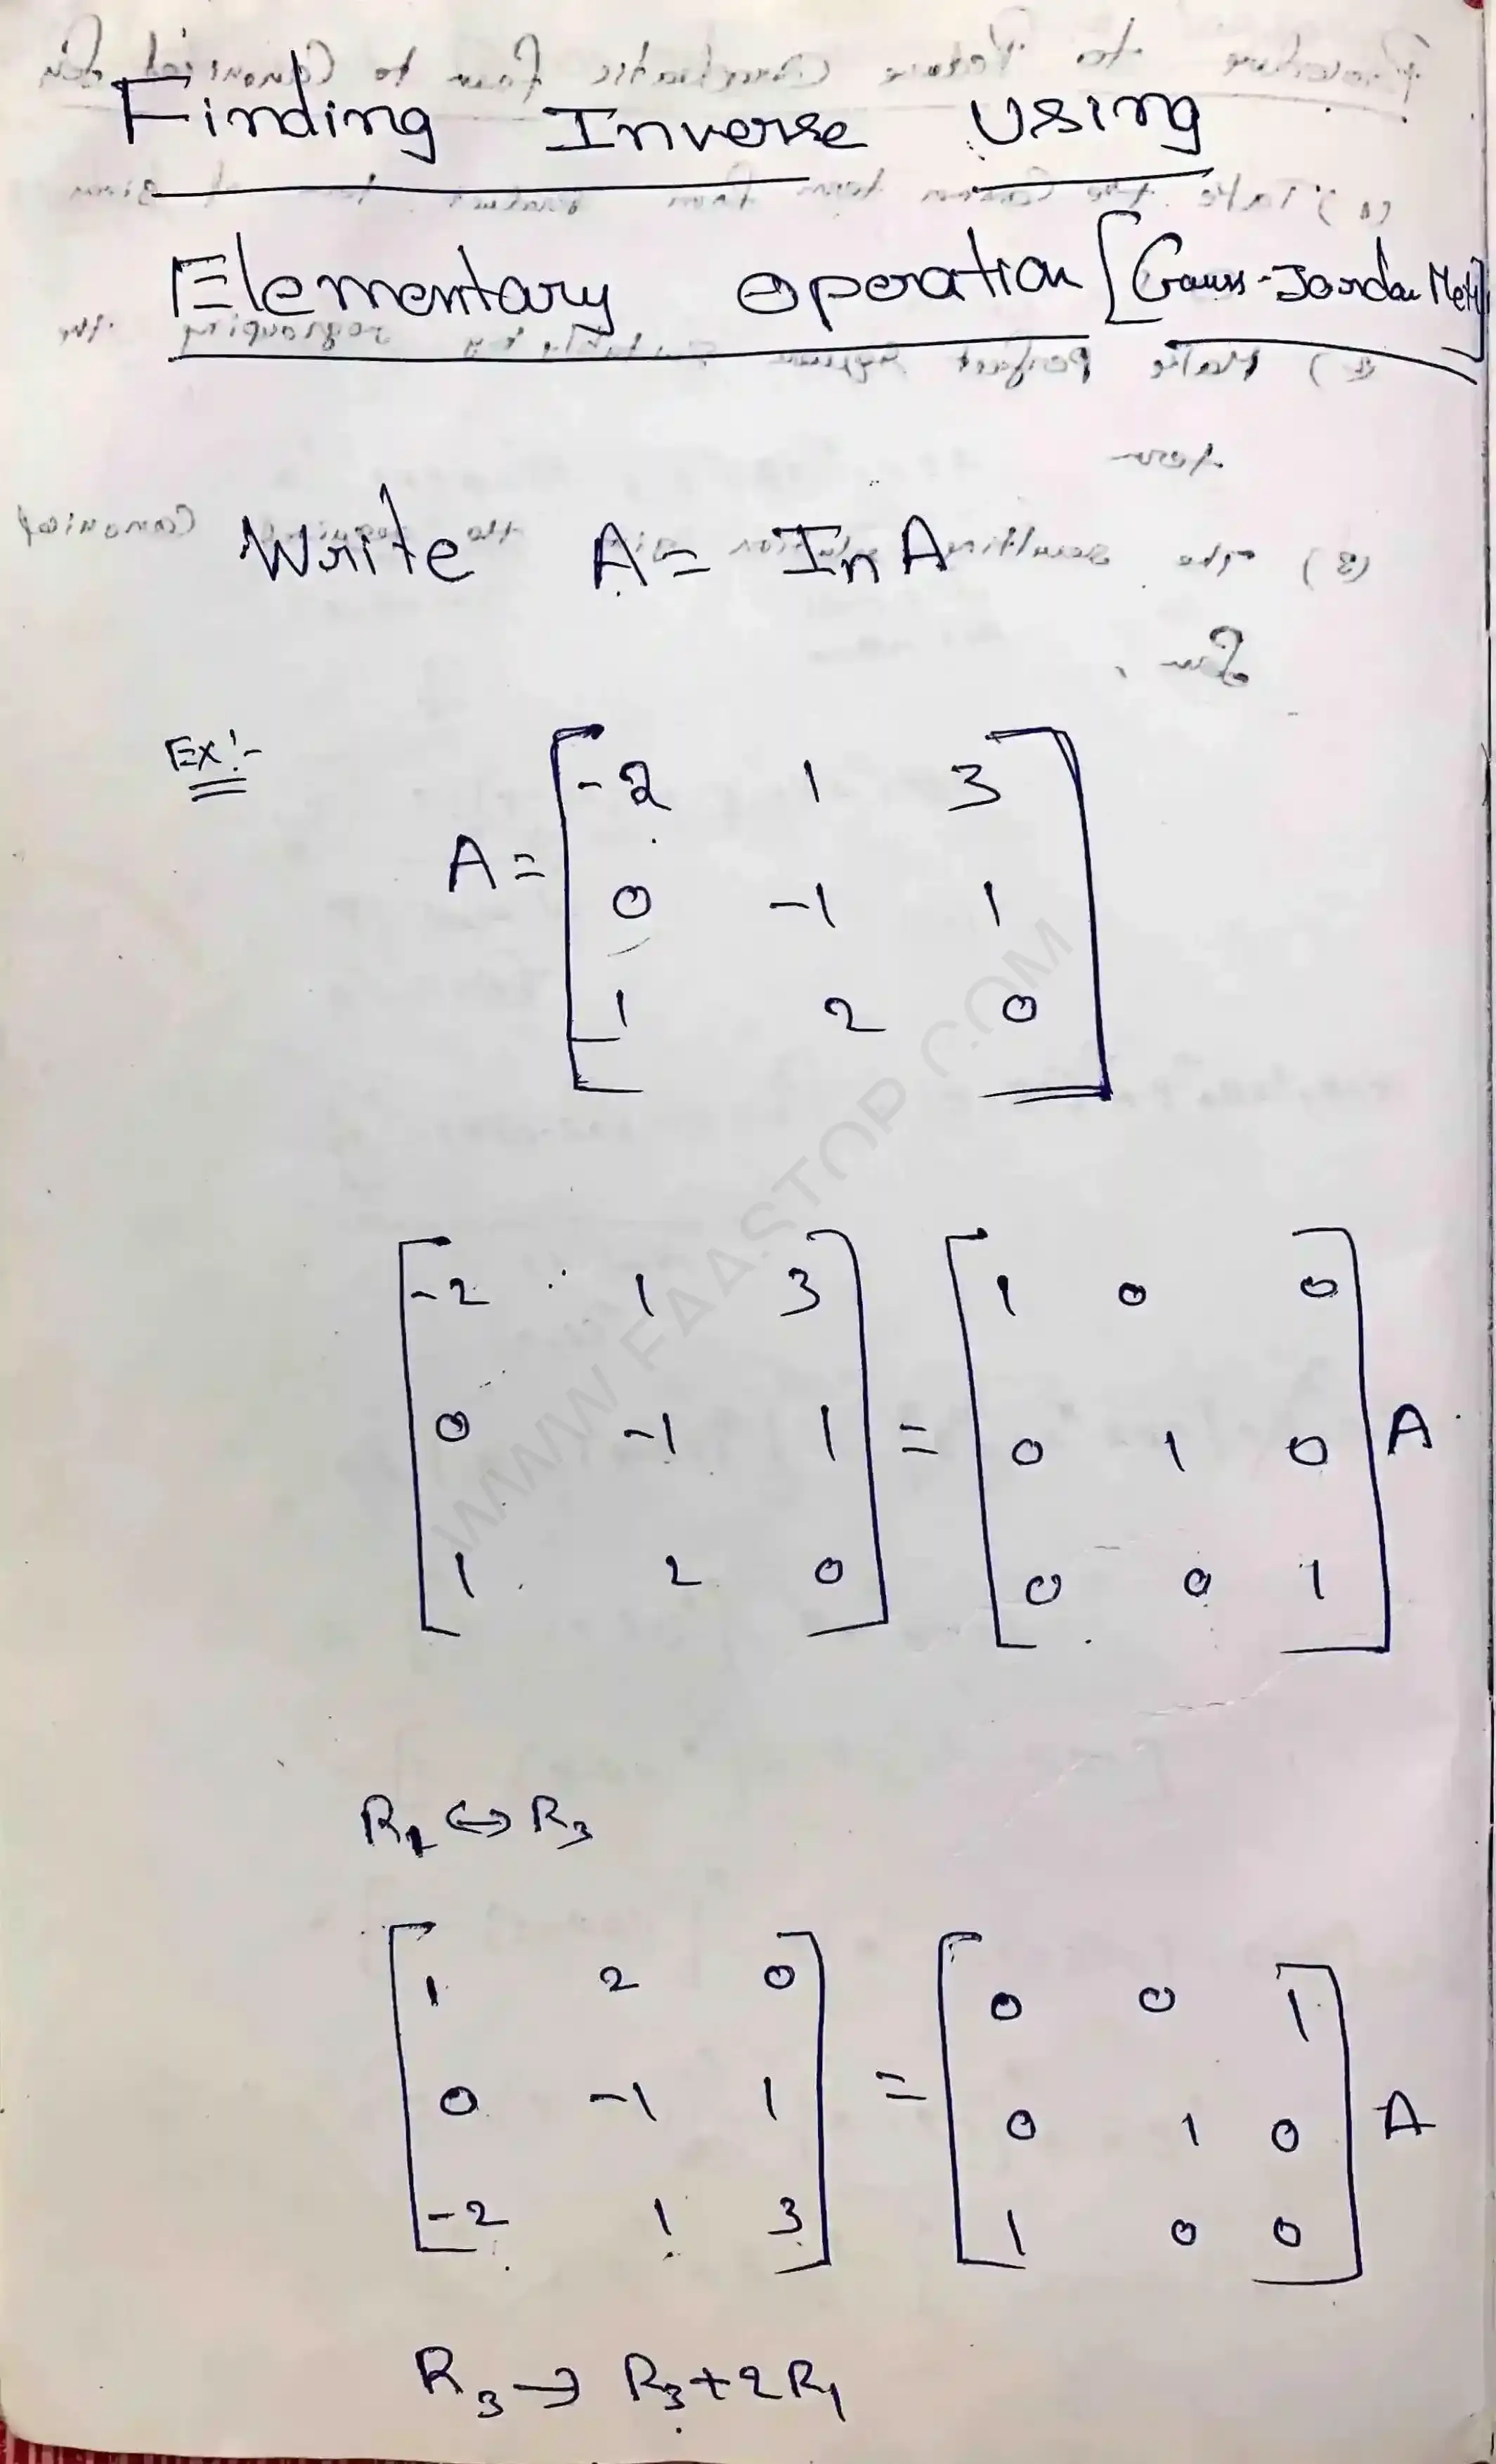 Finding Inverse Using
Elementary Operation [Gauss-Jordan Meth]
Write A = In A
Ex:-
A = [ -2 1 3
0 -1 1
1 2 0 ]
[ -2 1 3 ] = [ 1 0 0 ]
[ 0 -1 1 ] = [ 0 1 0 ] A
[ 1 2 0 ] [ 0 0 1 ]
R1 ↔ R3
[ 1 2 0 ] [ 0 0 1 ]
[ 0 -1 1 ] = [ 0 1 0 ] A
[ -2 1 3 ] [ 1 0 0 ]
R3 → R3 + 2R1
WWW.FAASTOP.COM